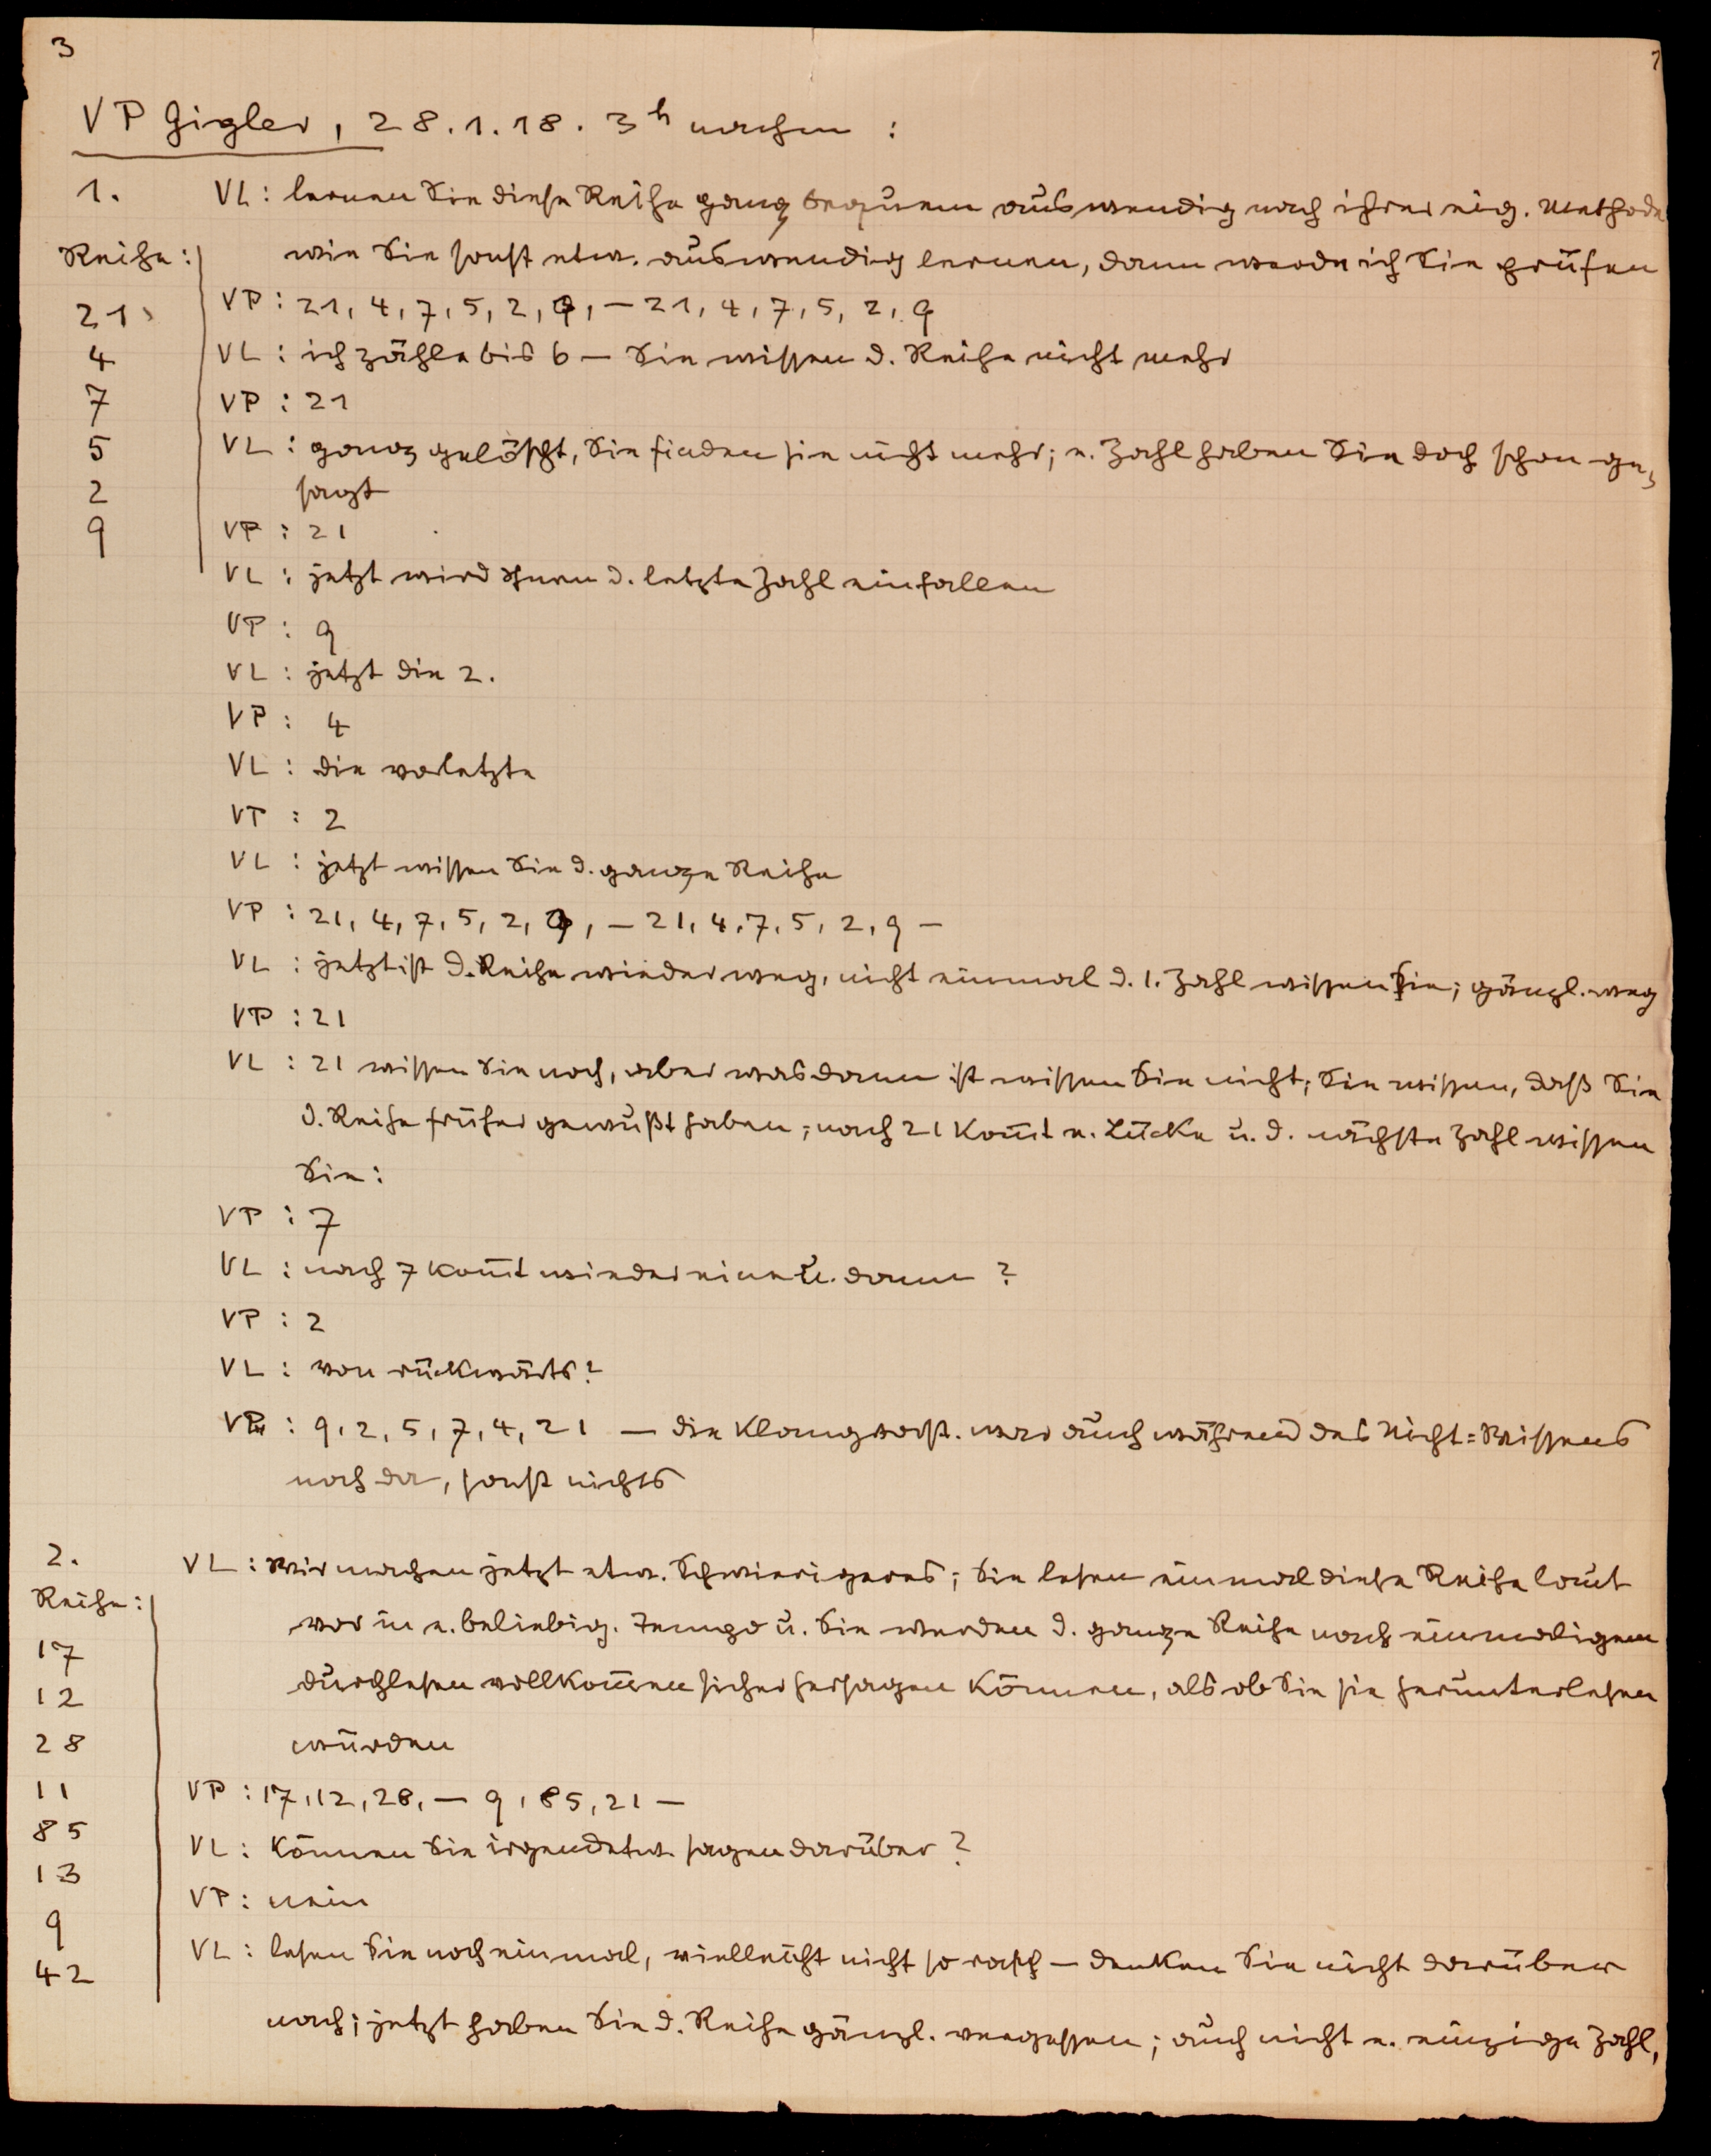 3
VP Gigler, 28.1.18. 3h nachm :
1.
VL: lernen Sie diese Reihe ganz bequem auswendig nach ihrer eig. Methode
Reihe:
wie Sie sonst etw. auswendig lernen, dann werde ich Sie prüfen
21
VP: 21, 4, 7, 5, 2, 9, — 21, 4, 7, 5, 2, 9
4
VL: ich zähle bis 6 — Sie wissen d. Reihe nicht mehr
7
VP: 21
5
VL: ganz gelöscht, Sie finden sie nicht mehr; e. Zahl haben Sie doch schon ge=
2
sagt
9
VP: 21
VL: jetzt wird Ihnen d. letzte Zahl einfallen
VP: 9
VL: jetzt die 2.
VP: 4
VL: die vorletzte
VP: 2
VL: jetzt wissen Sie d. ganze Reihe
VP: 21, 4, 7, 5, 2, 9, — 21, 4, 7, 5, 2, 9 —
VL: jetzt ist d. Reihe wieder weg, nicht einmal d. 1. Zahl wissen Sie; gänzl. weg
VP: 21
VL: 21 wissen Sie noch, aber was dann ist wissen Sie nicht; Sie wissen, daß Sie
d. Reihe früher gewußt haben; nach 21 kom̄t e. Lücke u. d. nächste Zahl wissen
Sie:
VP: 7
VL: nach 7 kom̄t wieder eine u. dann ?
VP: 2
VL: von rückwärts?
VP: 9, 2, 5, 7, 4, 21 — die Klangvorst. war auch während des Nicht=Wissens
noch da, sonst nichts
2.
VL: Wir machen jetzt etw. Schwierigeres; Sie lesen einmal diese Reihe laut
Reihe:
vor in e. beliebig. Tempo u. Sie werden d. ganze Reihe nach einmaligem
17
durchlesen vollkom̄en sicher hersagen können, als ob Sie sie herunterlesen
12
28
würden
11
VP: 17, 12, 28, — 9, 85, 21 —
85
VL: können Sie irgendetw. sagen darüber ?
13
VP: nein
9
VL: lesen Sie noch einmal, vielleicht nicht so rasch — denken Sie nicht darüber
42
nach; jetzt haben Sie d. Reihe gänzl. vergessen; auch nicht e. einzige Zahl,